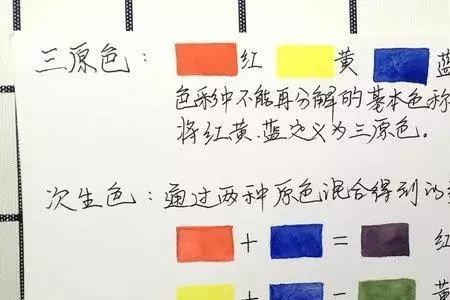 三原色： 红 黄 蓝
色彩中不能再分解的基本色称
将红黄、蓝定义为三原色。
次生色：通过两种原色混合得到的
+ = 红
+ = 黄